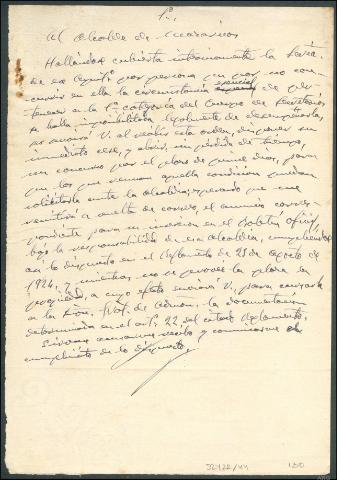 Al Alcalde de
Hallándose cubierta interinamente la Secría.
de ese Aynto. por persona que por no con-
currir en ella la circunstancia especial de per-
tenecer en la 1ª categoría del Cuerpo de Secretarios
se halla imposibilitada legalmente de desempeñarla,
V. al recibir esta orden, disponer su
inmediato cese, y abrir, sin pérdida de tiempo,
un concurso por el plazo de quince días, para
que los que reunan aquella condición puedan
solicitarla ante la Alcaldía; esperando que me
remitirá a vuelta de correo, el anuncio corres-
pondiente para su inserción en el Boletín Oficial,
bajo la responsabilidad de esa Alcaldía, cumpliendo
así lo dispuesto en el Reglamento de 23 de agosto de
1924, y mientras no se provee la plaza en
propiedad, a cuyo efecto enviará V., para cursarla
a la Dión. Gral. de Admon. la documentación
determinada en el artº 22 del citado Reglamento.
Sírvase acusarme recibo y comunicarme el
cumplimiento de lo dispuesto.
32422/44 150